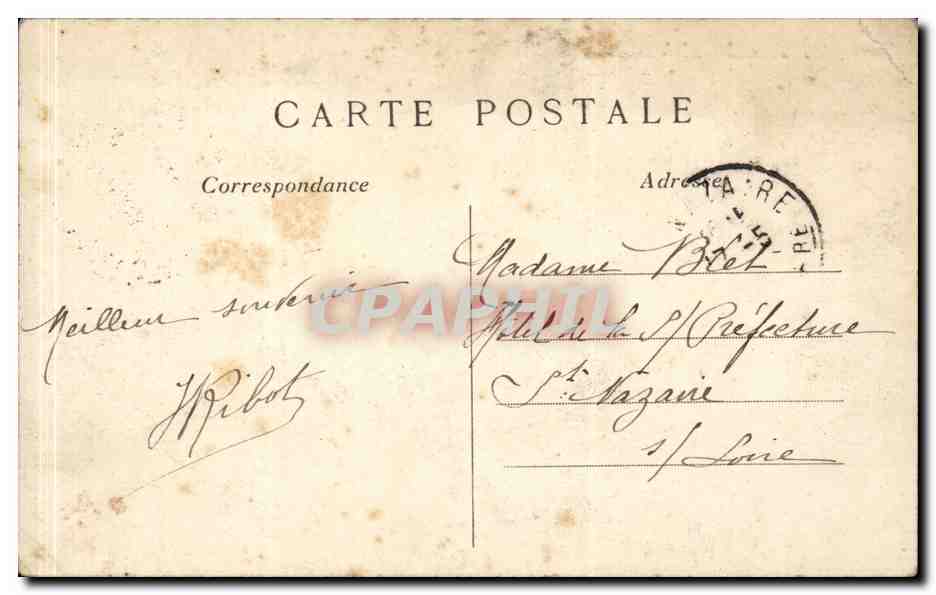 CARTE POSTALE
Correspondance
Adresse
Meilleur souvenir
HRibot
Madame Blet
Hôtel de la S/Préfecture
St. Nazaire
s/ Loire
CPAPHIL